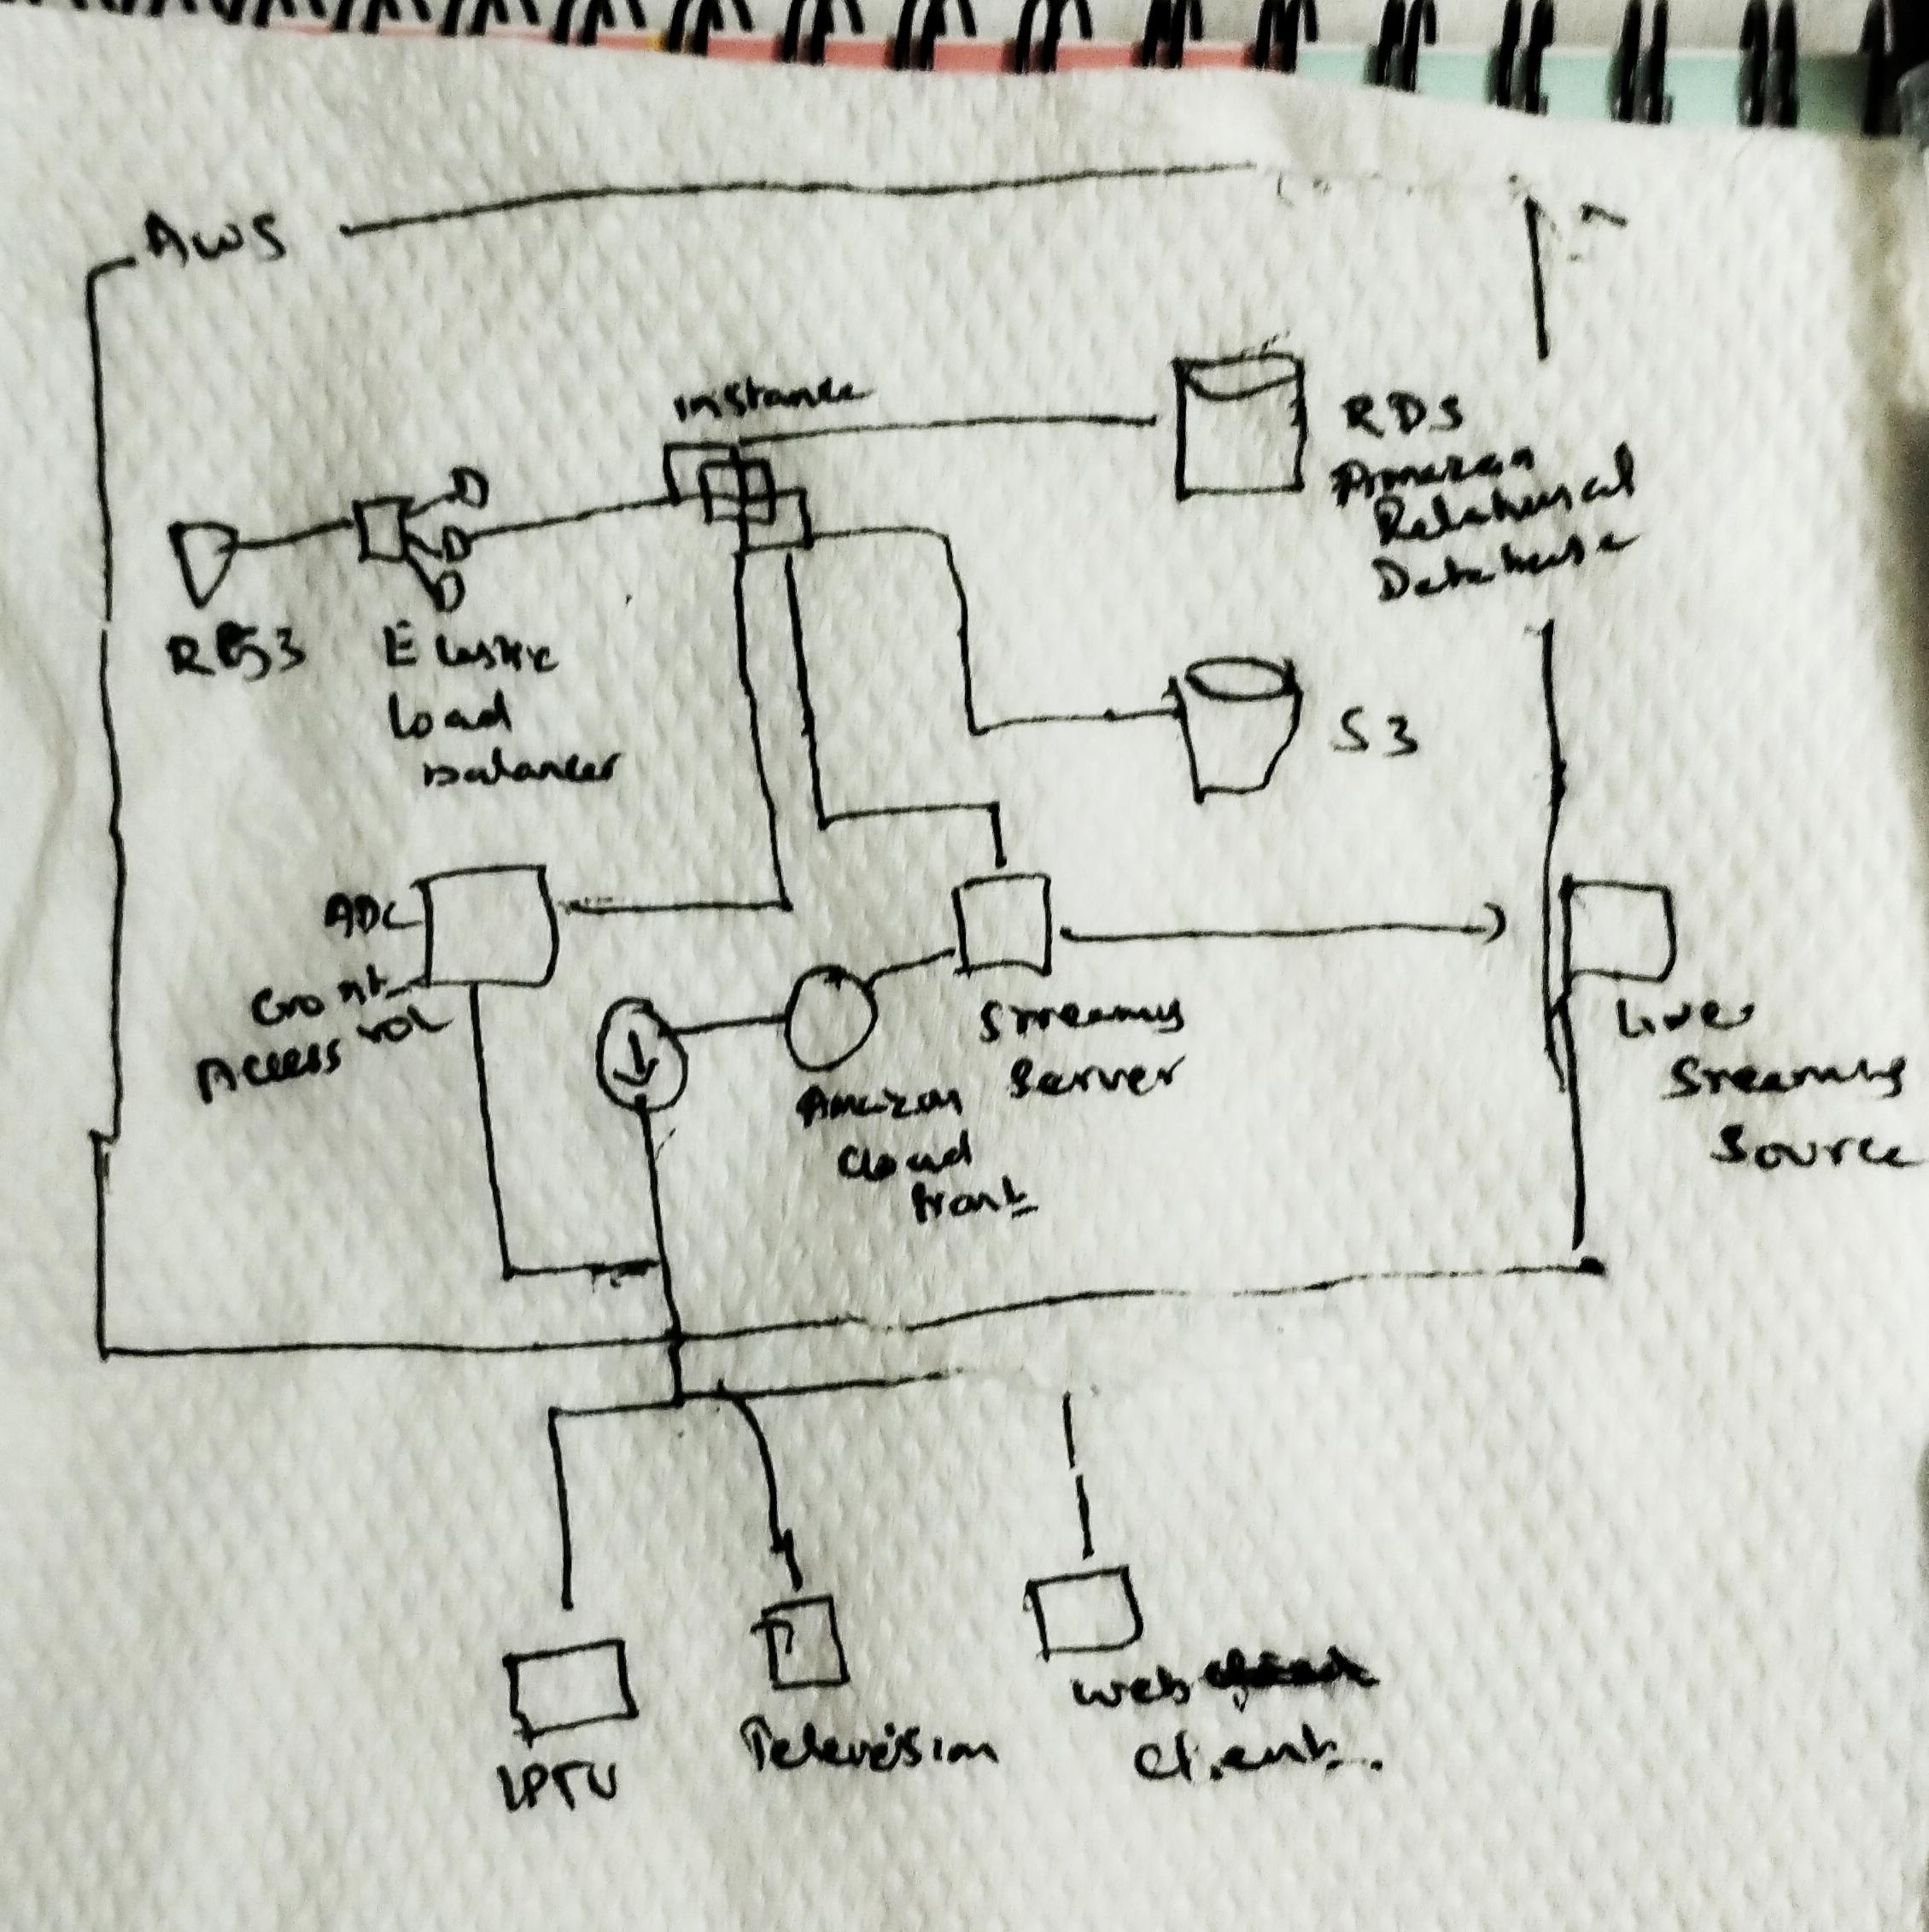 AWS
instance
RDS
Amazon
Relational
Database
Elastic
Load
balancer
S3
ADC
Access
Streaming
Server
Amazon
Cloud
front
Live
Streaming
Source
IPTV
Television
Web
Client.